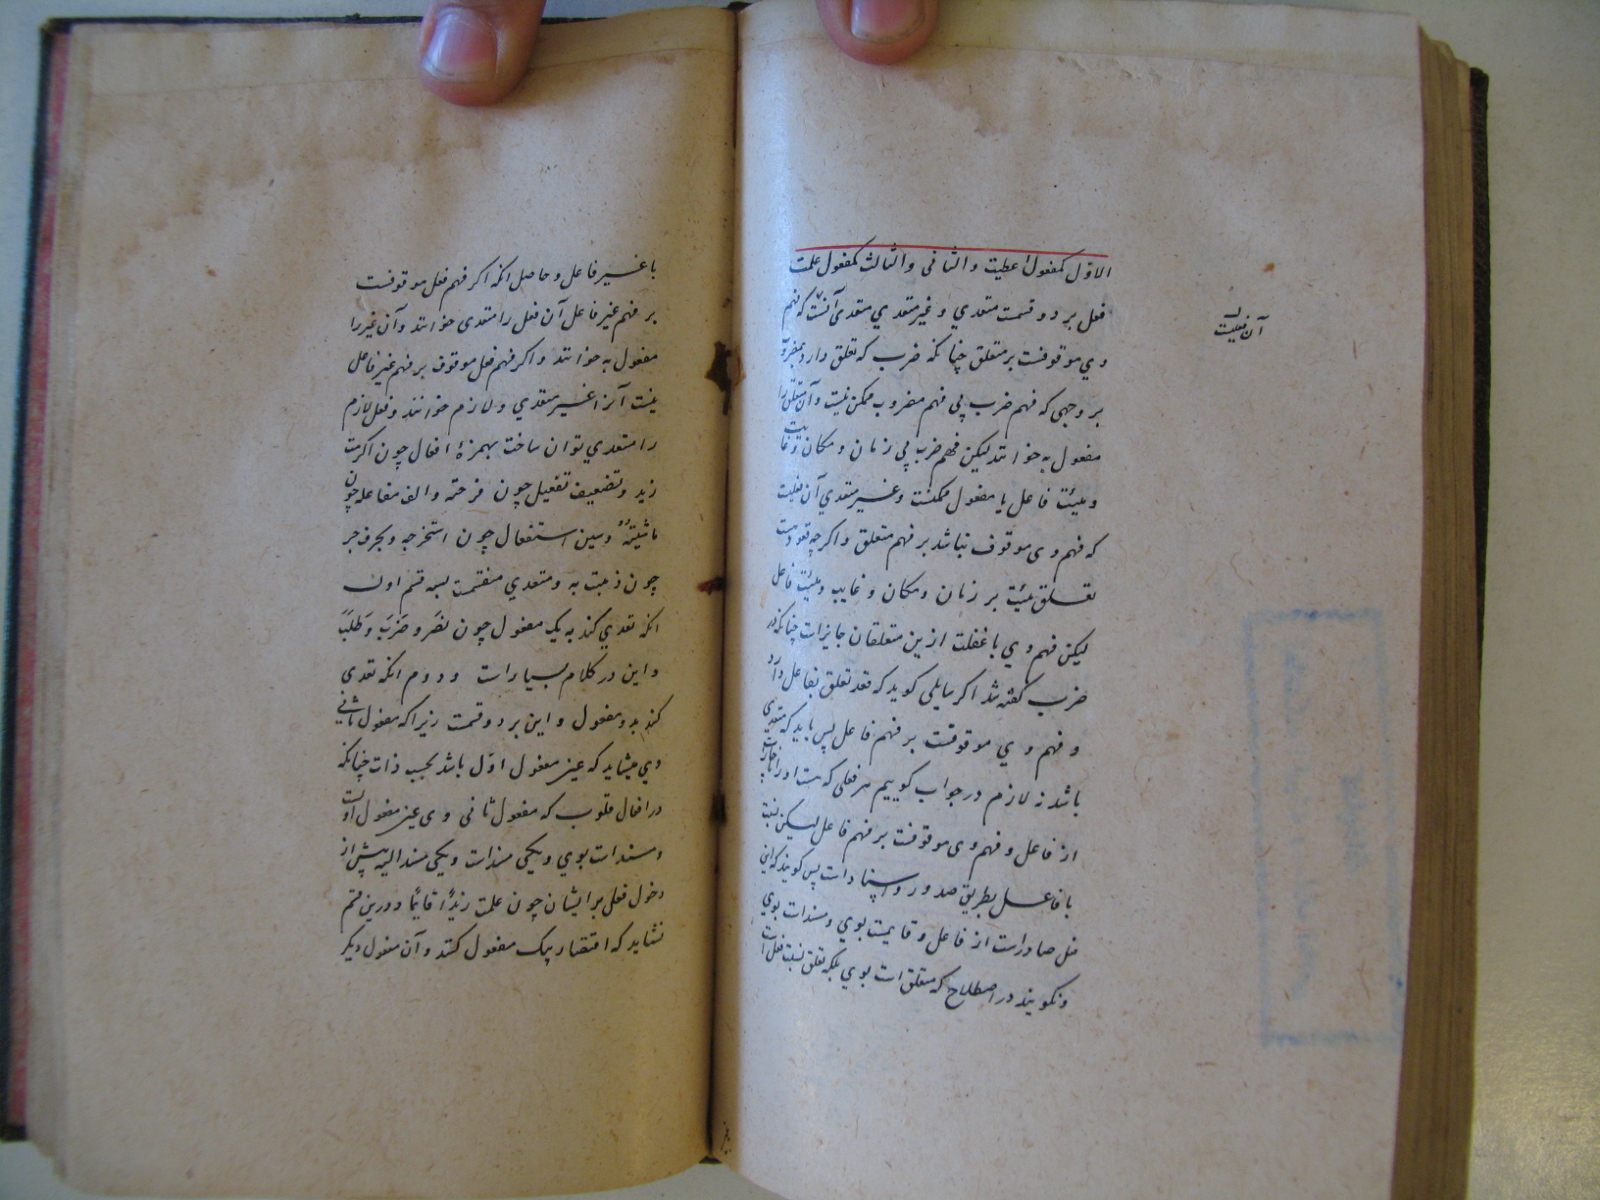 الاوّل کمفعول اعطیت والثانی والثالث کمفعول علمت
فعل بر دو قسمت متعدي و غیر متعدي متعدی آنست که فهم
وي موقوفست بر متعلق چنانکه ضرب که تعلق دارد بمضروب
بر وجهی که فهم ضرب بی فهم مضروب ممکن نیست و آن متعلق را
مفعول به خوانند لیکن فهم ضرب بی زمان و مکان و غایت
و هیئت فاعل یا مفعول ممکنست و غیر متعدي آن فعلیست
که فهم وی موقوف نباشد بر فهم متعلق و اگرچه
تعلق بر زمان و مکان و غایب و هیئت فاعل
لیکن فهم وي با غفلت ازین متعلقان جایزاست چنانکه در
ضرب گفته شد اگر سایلی گوید که قعد تعلق بفاعل دارد
و فهم وي موقوفست بر فهم فاعل پس باید که متعدي
باشد نه لازم در جواب گوییم هر فعلی که هست او را
از فاعل و فهم وی موقوفست بر فهم فاعل لیکن نسبت
با فاعل بطریق صدور و اسناد است پس گویند که این
فعل صادراست از فاعل و قایمست بوي و مسندات بوي
ونگویند در اصطلاح که متعلق است بوي بلکه تعلق نسبت فعل است
آن فعلیست
با غیر فاعل و حاصل انکه اگر فهم فعل موقوفست
بر فهم غیر فاعل آن فعل را متعدی خوانند و آن غیر را
مفعول به خوانند و اگر فهم فعل موقوف بر فهم غیر فاعل
نیست آنرا غیر متعدي و لازم خوانند و فعل لازم
را متعدي توان ساخت بهمزهٔ افعال چون اکرمت
زید و تضعیف تفعیل چون فرحته والف مفاعله چون
ماشیته و سین استفعال چون استخرجه وبحرف جر
چون ذهبت به و متعدي منقسمست بسه قسم اول
انکه تعدي کند به یک مفعول چون نَصَرَ و ضَرَبَ و طَلَبَ
و این در کلام بسیار است و دوم انکه تعدی
کند بدو مفعول و این بر دو قسمت زیرا که مفعول ثانی
وي میشاید که عین مفعول اوّل باشد بحسب ذات چنانکه
در افعال قلوب که مفعول ثانی وی عین مفعول اولست
و مسندات بوي و یکی مسندات و یکی مسند الیه پیش از
دخول فعل بر ایشان چون علمت زیدًا قایمًا و درین قسم
نشاید که اقتصار بیک مفعول کنند و آن مفعول دیگر